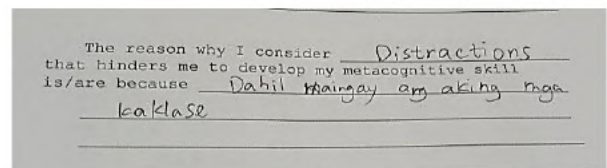 The reason why I consider Distractions
that hinders me to develop my metacognitive skill
is/are because Dahil maingay ang aking mga
kaklase